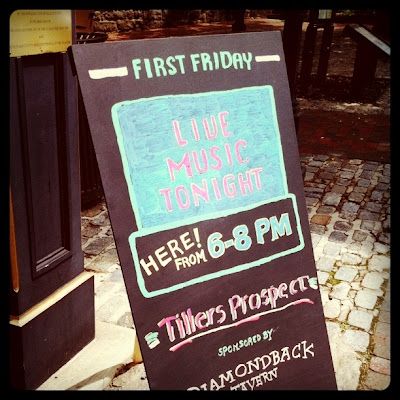 FIRST FRIDAY
LIVE
MUSIC
TONIGHT
HERE!
FROM 6-8 PM
Tillers Prospect
SPONSORED BY
DIAMONDBACK
TAVERN